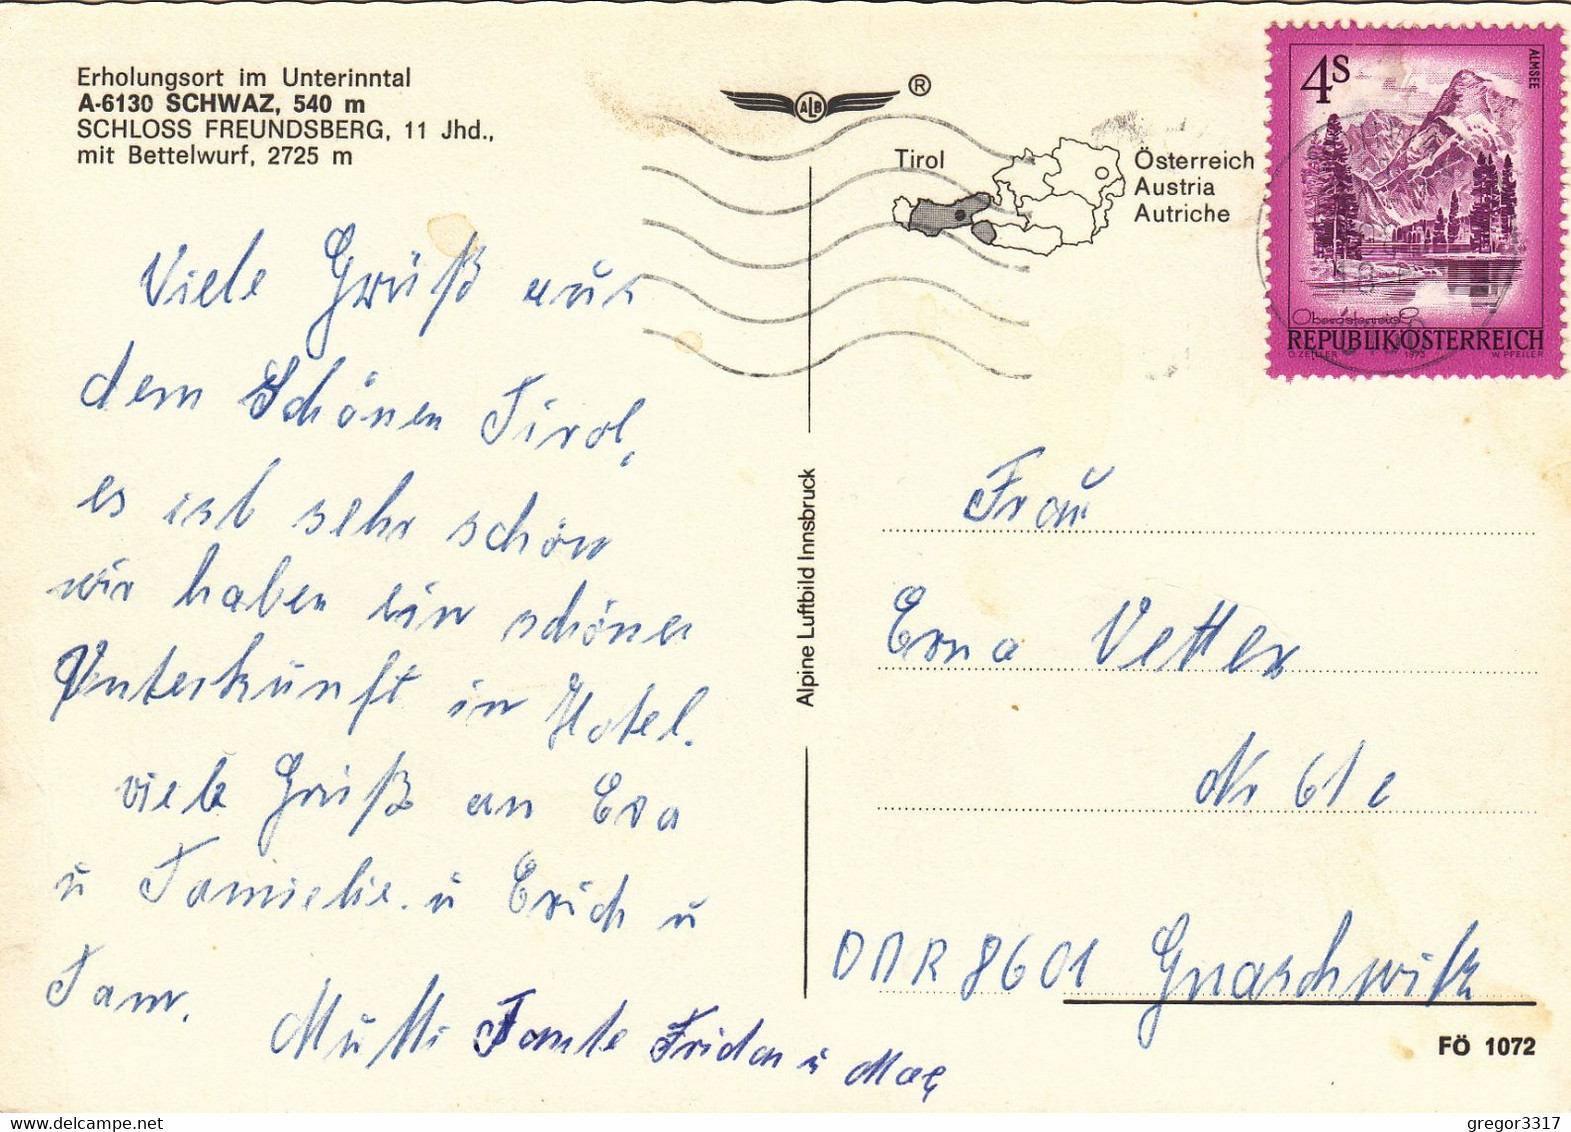 Erholungsort im Unterinntal
A-6130 SCHWAZ, 540 m
SCHLOSS FREUNDSBERG, 11 Jhd.,
mit Bettelwurf, 2725 m
ALB ®
Tirol
Österreich
Austria
Autriche
4S
ALMSEE
Oberösterreich
REPUBLIK ÖSTERREICH
O. ZEILLER 1973 W. PFEILER
Viele Grüß aus
dem Schönen Tirol,
es ist sehr schön
wir haben ein schöne
Unterkunft in Hotel.
viele Grüß an Eva
u Familie. u Erich u
Fam.
Mutti Tante Frida u
Alpine Luftbild Innsbruck
Frau
Erna Vetter
Nr 61 c
DDR 8601 Gnaschwitz
FÖ 1072
gregor3317